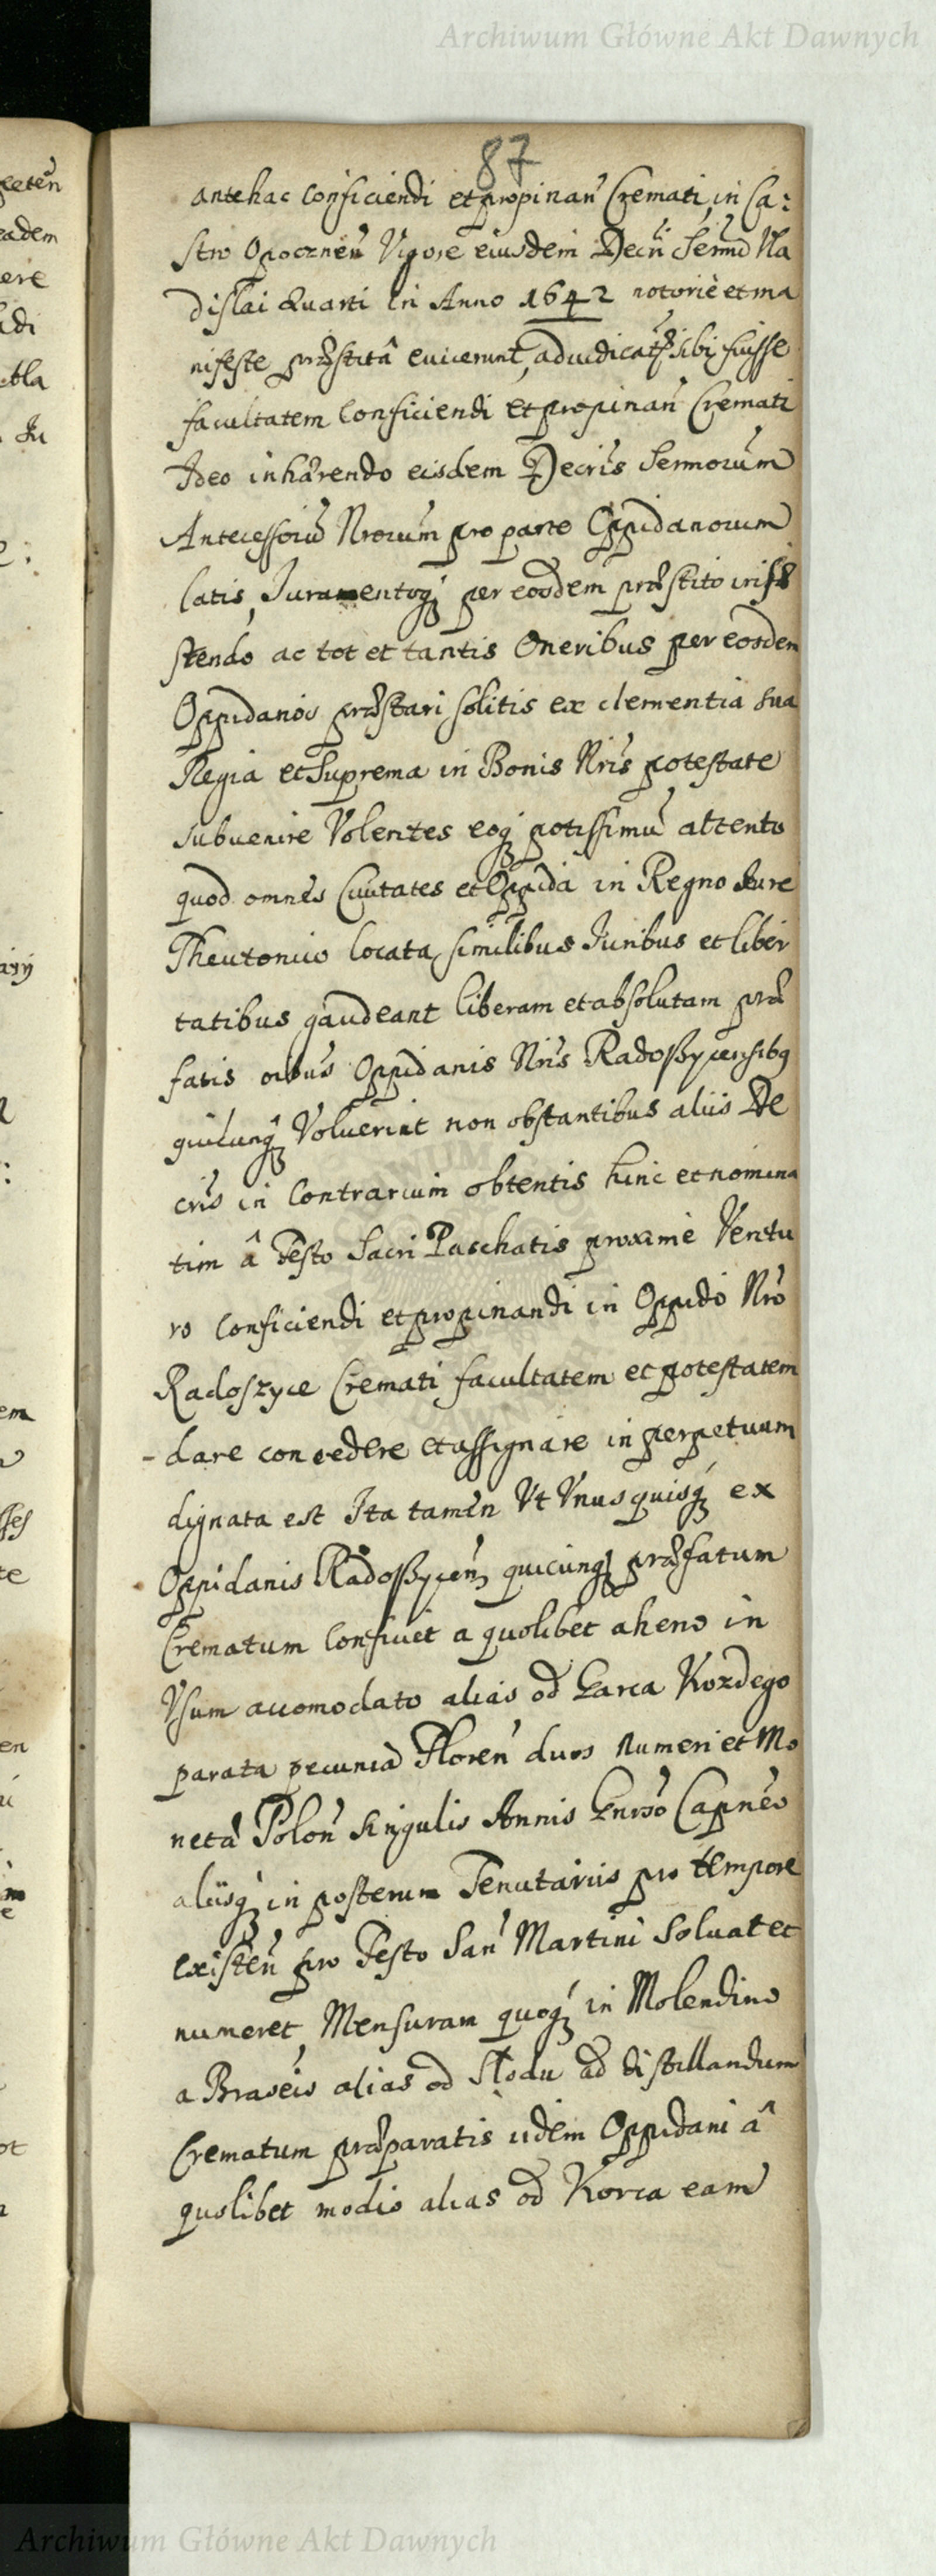 Archiwum Główne Akt Dawnych
87
antehac conficiendi et propinan̄ Cremati, in Ca:
stro Opocznen̄ Vigore eiusdem Decrī Sermī Vla
dislai Quarti in Anno 1642 notoriè et ma
nifeste præstitâ evicerunt, adiudicatq́ sibi fuisse
facultatem conficiendi et propinan̄ Cremati
Ideo inhærendo eisdem Decrīs Sermorum
Antecessorū Nrorum pro parte Oppidanorum
latis, Juramentoq́ per eosdem præstito insi
stendo ac tot et tantis Oneribus per eosdem
Oppidanos præstari solitis ex clementia sua
Regia et Suprema in Bonis Nrīs potestate
subvenire Volentes eoq́ potissimū attento
quod omnes Civitates et Oppida in Regno Iure
Theutonico locata, similibus Juribus et liber
tatibus gaudeant liberam et absolutam præ
fatis oībus Oppidanis Nrīs Radoszycensibq
quicunq́ Voluerint non obstantibus aliis De
crīs in contrarium obtentis hinc et nomina
tim â Festo Sacri Paschatis proximè Ventu
ro conficiendi et propinandi in Oppido Nrō
Radoszyce Cremati facultatem et potestatem
- dare concedere et assignare in perpetuum
dignata est Ita tamen Vt Vnusquisq́ ex
Oppidanis Radoszycen̄ quicunq́ præfatum
Crematum conficiet a quolibet aheno in
Vsum accomodato alias od Garca Kozdego
parata pecunia Floren̄ duos numeri et Mo
netæ Polon̄ singulis Annis Gnrōso Capneo
aliisq́ in posterum Tenutariis pro tempore
existen̄ pro Festo San̄ Martini solvat et
numeret, Mensuram quoq́ in Molendino
a Braseis alias od Słodu ad distillandum
Crematum præparatis iidem Oppidani â
quolibet modio alias od Korca eam
Archiwum Główne Akt Dawnych